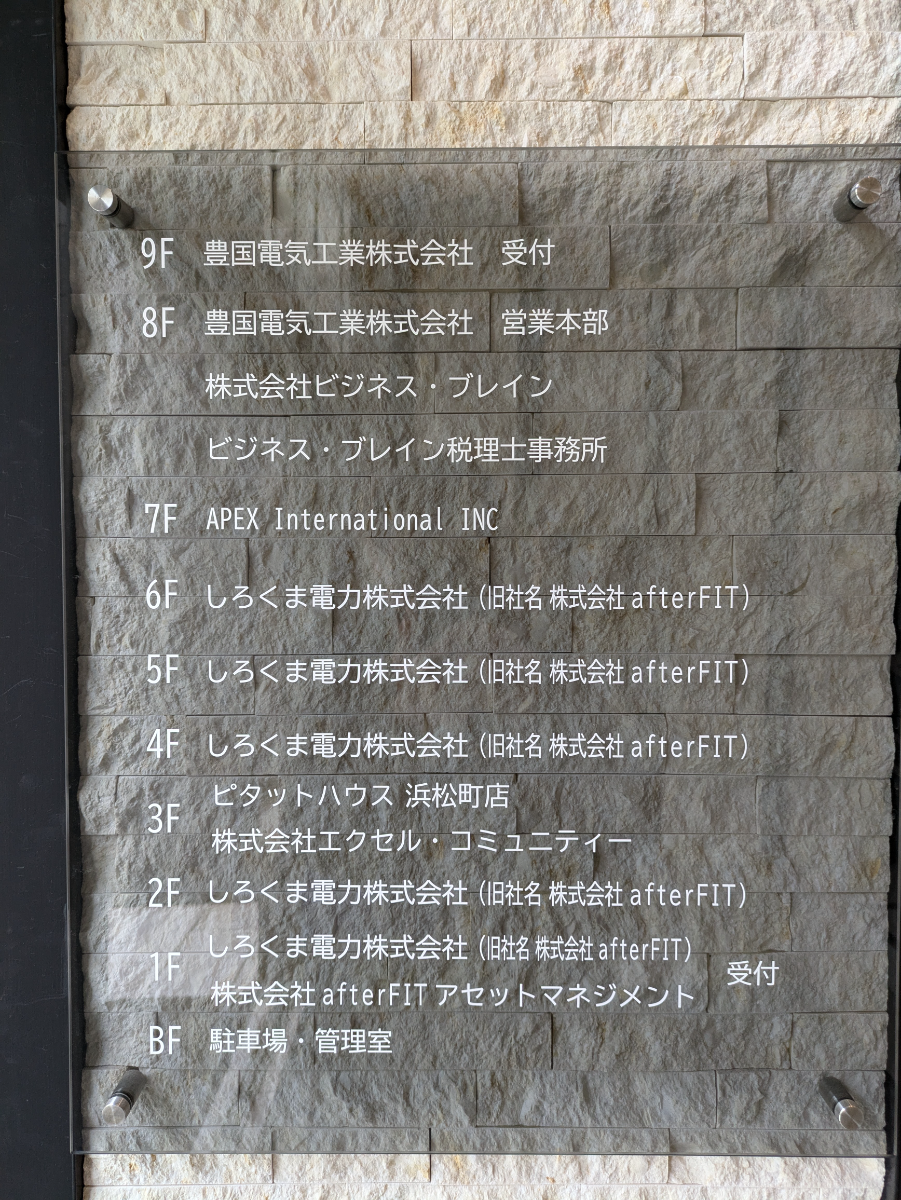 9F 豊国電気工業株式会社 受付
8F 豊国電気工業株式会社 営業本部
株式会社ビジネス・ブレイン
ビジネス・ブレイン税理士事務所
7F APEX International INC
6F しろくま電力株式会社(旧社名 株式会社afterFIT)
5F しろくま電力株式会社(旧社名 株式会社afterFIT)
4F しろくま電力株式会社(旧社名 株式会社afterFIT)
3F ピタットハウス 浜松町店
株式会社エクセル・コミュニティー
2F しろくま電力株式会社(旧社名 株式会社afterFIT)
1F しろくま電力株式会社(旧社名 株式会社afterFIT)
株式会社afterFITアセットマネジメント 受付
BF 駐車場・管理室